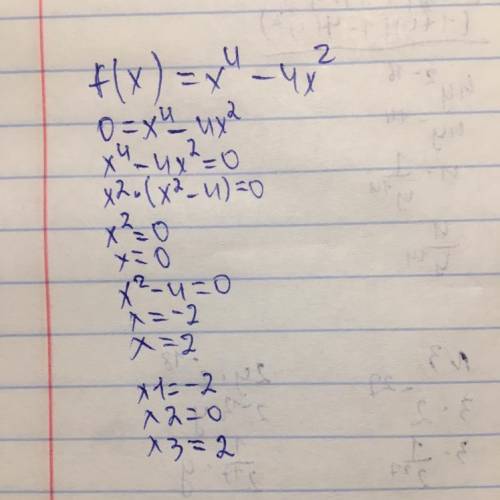 f(x) = x⁴ - 4x²
0 = x⁴ - 4x²
x⁴ - 4x² = 0
x² · (x² - 4) = 0
x² = 0
x = 0
x² - 4 = 0
x = -2
x = 2
x1 = -2
x2 = 0
x3 = 2